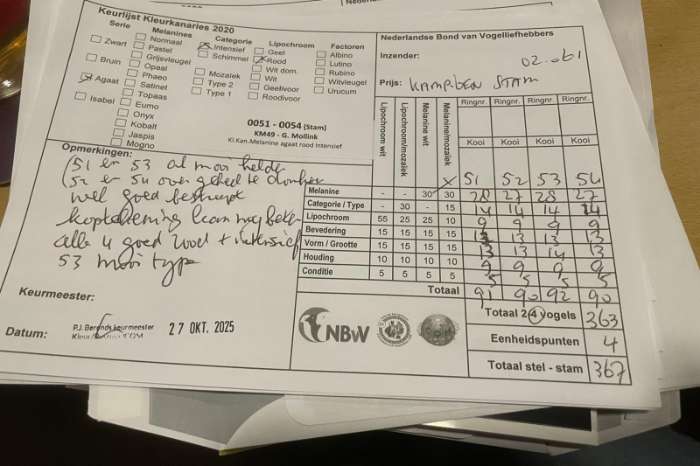 Keurlijst Kleurkanaries 2020
Nederlandse Bond van Vogelliefhebbers
Serie Melanines Categorie Lipochroom Factoren
Zwart Normaal Intensief Geel Albino
Pastel Schimmel Rood Lutino
Bruin Grijsvleugel Wit dom. Rubino
Opaal Mozaïek Wit Witvleugel
Agaat Phaeo Type 2 Geelivoor Urucum
Satinet Type 1 Roodivoor
Isabel Topaas
Eumo
Onyx
Kobalt
Jaspis
Mogno
0051 - 0054 (Stam)
KM49 - G. Mollink
Kl.Kan.Melanine agaat rood intensief
Inzender: 02.061
Prijs: KAMPIOEN STAM
Opmerkingen:
51 en 53 al mooi helder
52 en 54 over geheel te donker
wel goed bestreept
koptekening kan nog beter
alle 4 goed rood + intensief
53 mooi type
Keurmeester:
P.J. Berends keurmeester
Datum: 27 OKT. 2025
Lipochroom wit Lipochroom/mozaïek Melanine wit Melanine/mozaïek
Ringnr. Ringnr. Ringnr. Ringnr.
Kooi Kooi Kooi Kooi
X 51 52 53 54
Melanine - - 30 30 28 27 28 27
Categorie / Type - 30 - 15 14 14 14 14
Lipochroom 55 25 25 10 9 9 9 9
Bevedering 15 15 15 15 13 13 13 13
Vorm / Grootte 15 15 15 15 13 13 14 13
Houding 10 10 10 10 9 9 9 9
Conditie 5 5 5 5 5 5 5 5
Totaal 91 90 92 90
Totaal 2-4 vogels 363
Eenheidspunten 4
Totaal stel - stam 367
NBvV